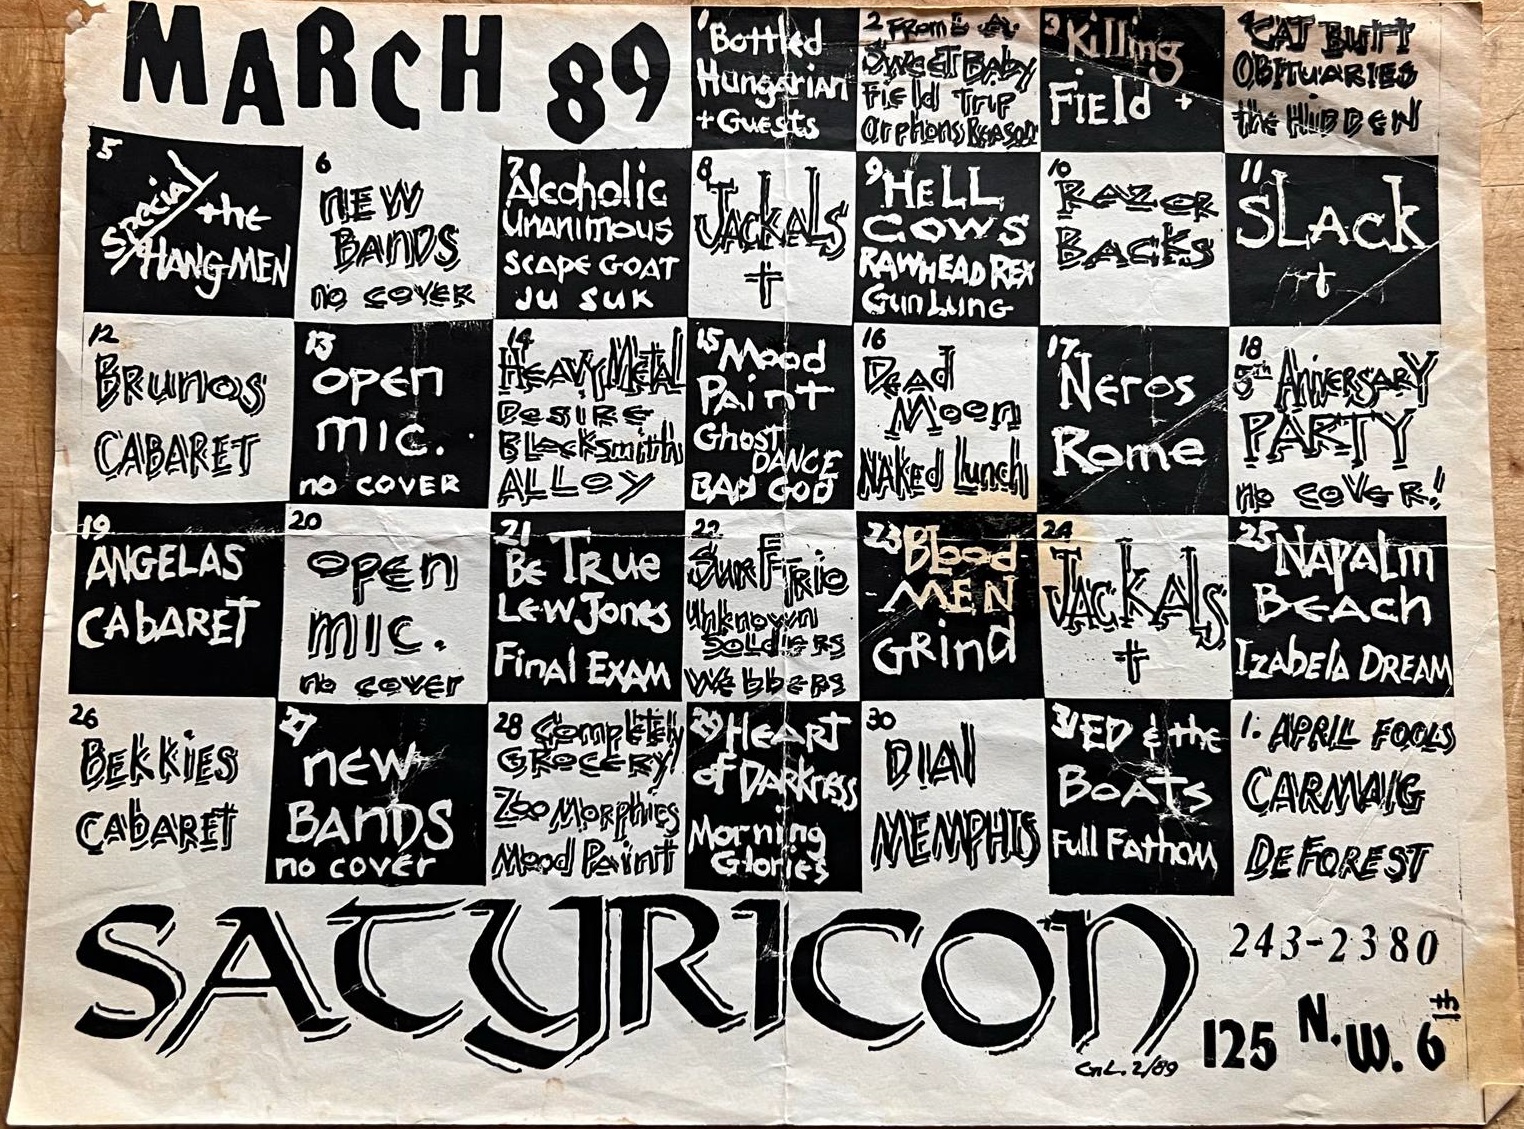 MARCH 89
1 Bottled
Hungarian
+ Guests
2 From L.A.
Sweet Baby
Field Trip
Orphons Reason
3 Killing
Field +
4 CAT BUTT
OBITUARIES
the HIDDEN
5
special the
HANGMEN
6
NEW
BANDS
no cover
7
Alcoholic
Unanimous
SCAPE GOAT
JU SUK
8
JACKALS
+
9 HELL
COWS
RAWHEAD REX
Gun Lung
10
RAZOR
BACKS
11
SLACK
+
12
Brunos
CABARET
13
open
mic.
no cover
14
HEAVY METAL
DESIRE
Blacksmith
ALLOY
15 Mood
Paint
Ghost
DANCE
BAD GOD
16
Dead
Moon
NAKED Lunch
17
Neros
Rome
18
5th ANIVERSARY
PARTY
no cover!!
19
ANGELAS
CABARET
20
open
mic.
no cover
21
Be True
Lew Jones
Final EXAM
22
Surf Trio
Unknown
Soldiers
Webbers
23 Blood
MEN
Grind
24
JACKALS
+
25 NAPALM
BEACH
Izabela DREAM
26
BEKKIES
CABARET
27
new
BANDS
no cover
28 Completely
GROCERY!
Zoo Morphics
Mood Paint
29 HEART
of Darkness
Morning
Glories
30
DIAL
MEMPHIS
31 ED & the
BOATS
Full Fathom
1. APRIL FOOLS
CARMAIG
DeFOREST
SATYRICON
243-2380
125 N.W. 6th
2/89